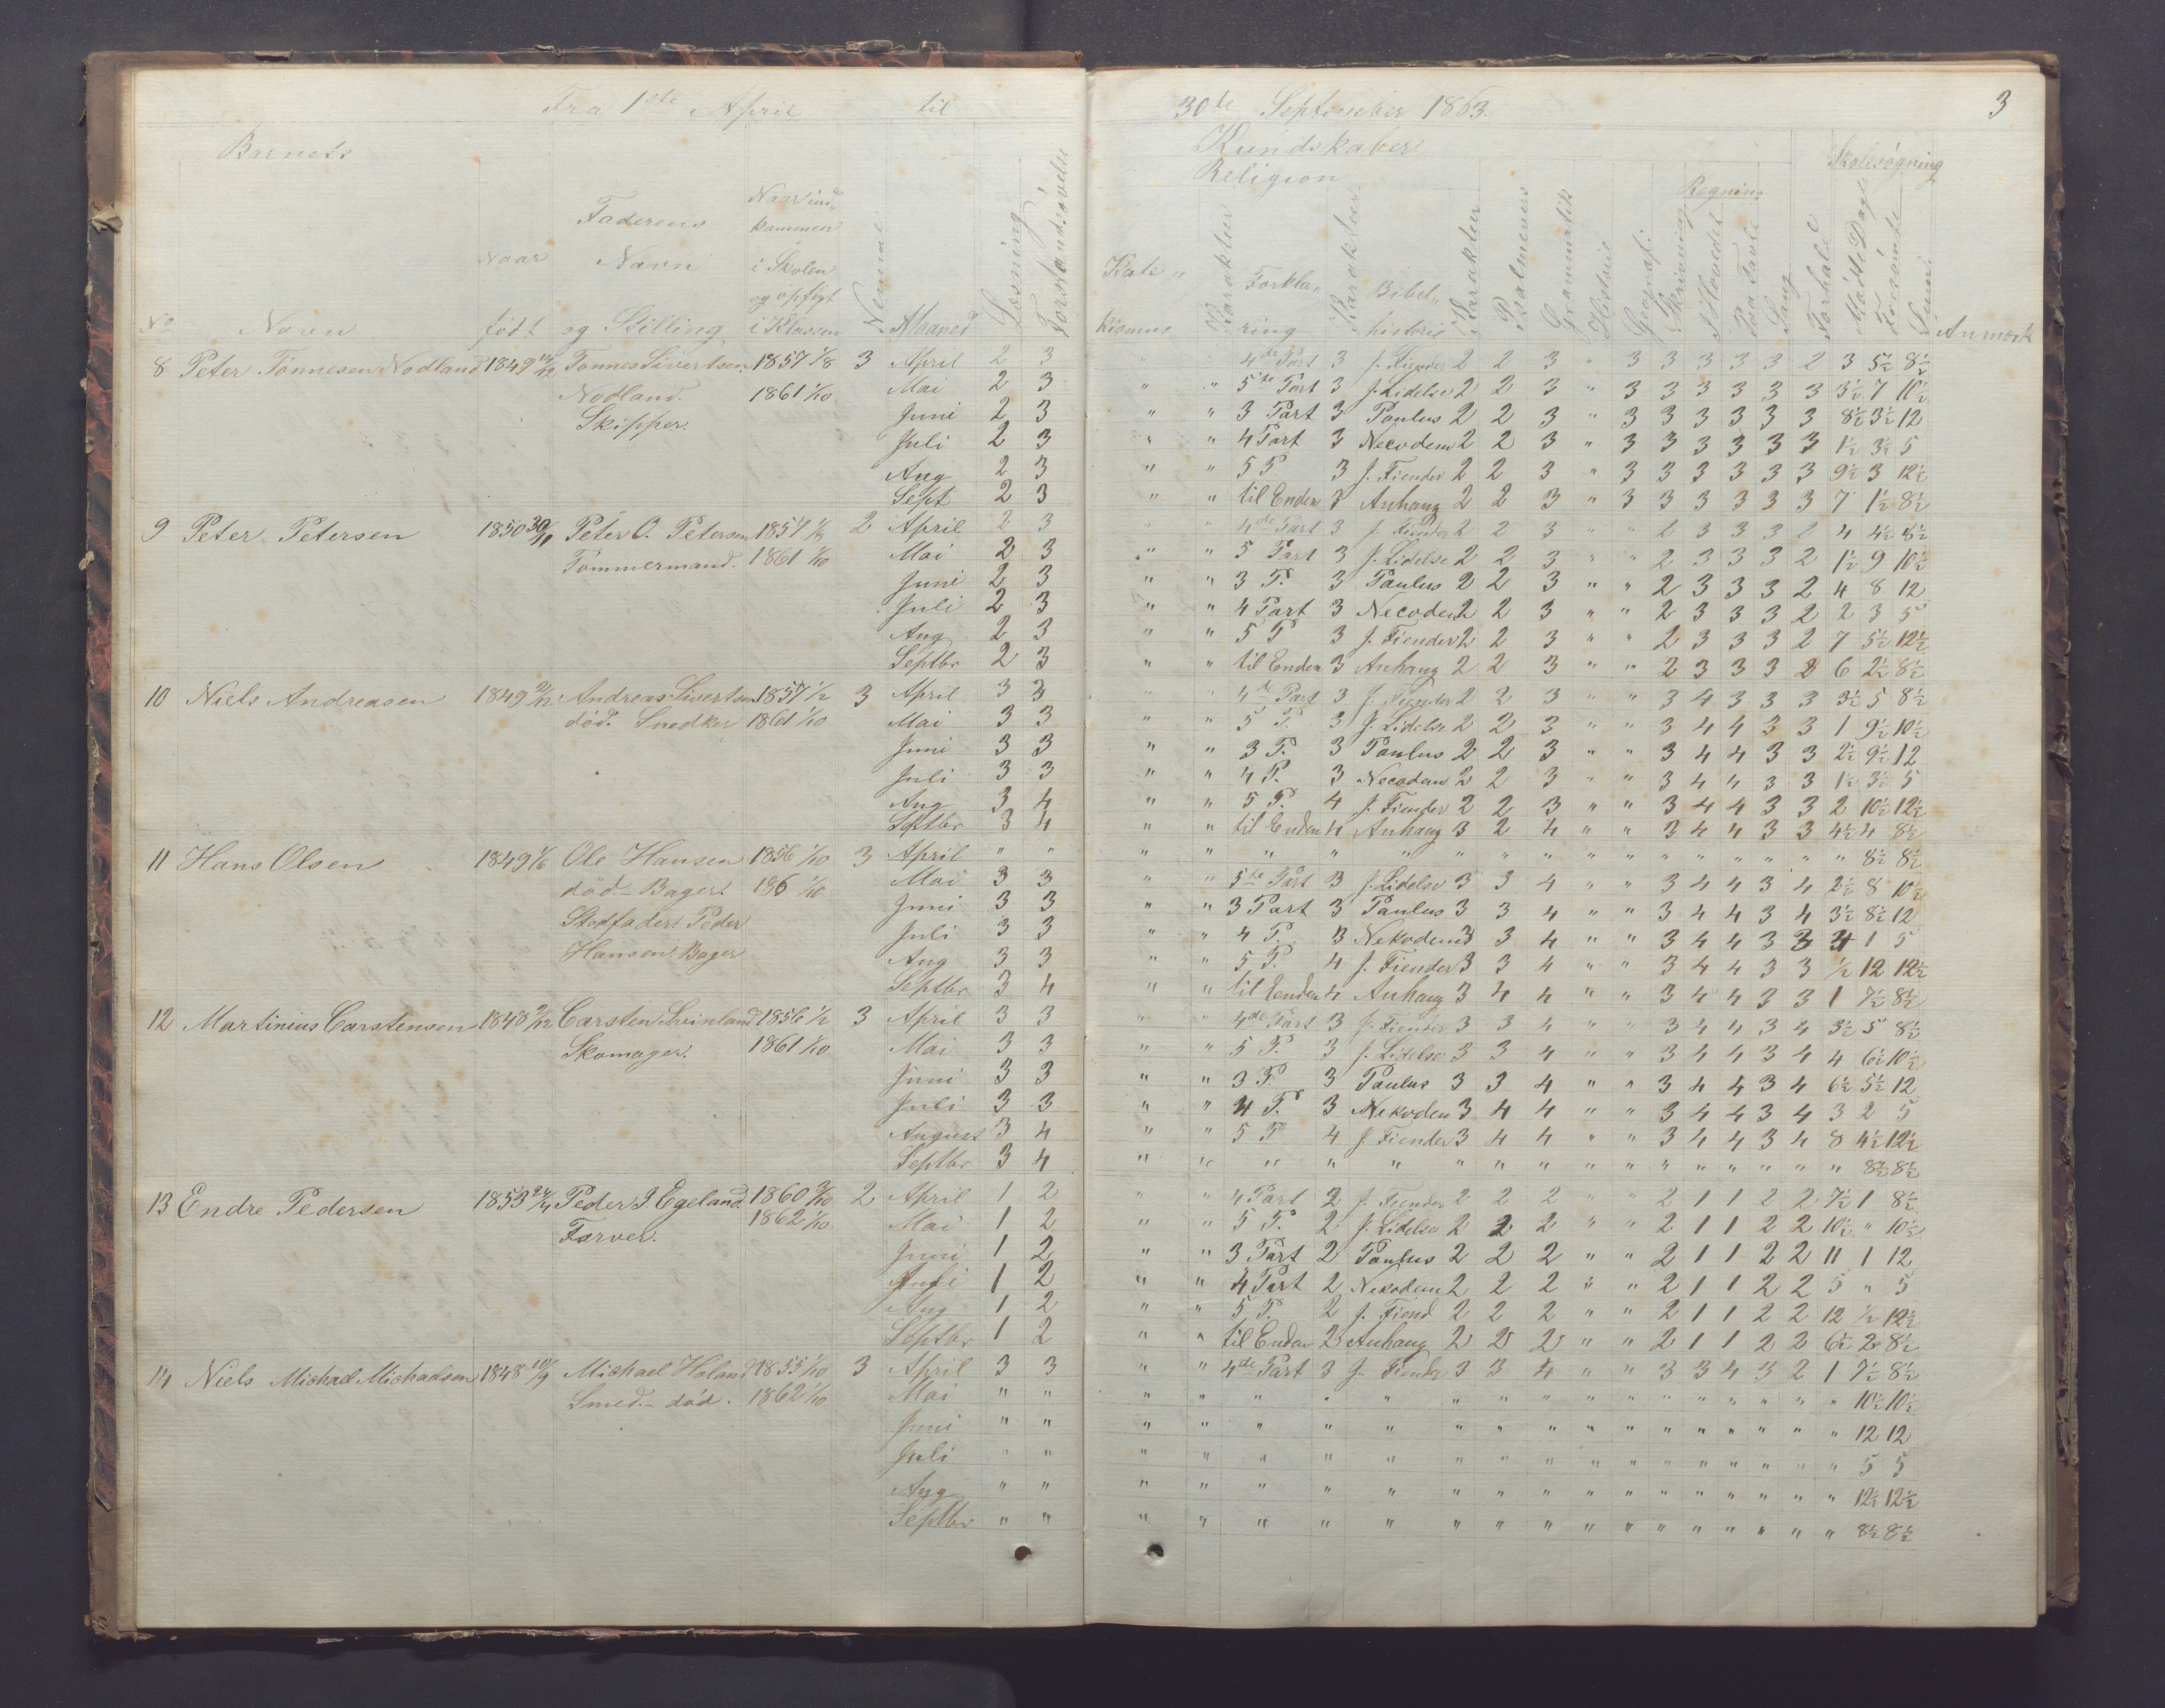 Fra 1ste April til 30te September 1863. 3
Barnets Kundskaber Skolesøgning
Religion Regning
No Navn Naar født Faderens Navn og Stilling Naar ind- kommen i Skolen og opflyt i Klassen Nemme Maaned Læsning Forstandsøvelse Kate- kismus Karakteer Forkla- ring Karakteer Bibel- historie Karakteer Psalmevers Grammatik Historie Geografi Skrivning i Hovedet Paa Tavle Sang Forhold Mødte Dage Forsømte Summa Anmærk
8 Peter Tönnesen Nodland 1849 Tonnes Sivertsen 1857 1/8 3 April 2 3 " 4de Part 3 J. Fiender 2 2 3 " 3 3 3 3 3 2 3 5½ 8½
Nodland. 1861 1/10 Mai 2 3 " " 5te Part 3 J. Lidelse 2 2 3 " 3 3 3 3 3 3 3½ 7 10½
Skipper. Juni 2 3 " " 3 Part 3 Paulus 2 2 3 " 3 3 3 3 3 3 8½ 3½ 12
Juli 2 3 " " 4 Part 3 Necodem 2 2 3 " 3 3 3 3 3 3 1½ 3½ 5
Aug 2 3 " " 5 P 3 J. Fiender 2 2 3 " 3 3 3 3 3 3 9½ 3 12½
Sept 2 3 " " til Enden 3 Anhang 2 2 3 " 3 3 3 3 3 3 7 1½ 8½
9 Peter Petersen 1850 30/11 Peter O. Petersen 1857 2 April 2 3 " " 4de Part 3 J. Fiender 2 2 3 " " 2 3 3 3 2 4 4½ 8½
Tömmermand. 1861 1/10 Mai 2 3 " " 5 Part 3 J. Lidelse 2 2 3 " " 2 3 3 3 2 1½ 9 10½
Juni 2 3 " " 3 P. 3 Paulus 2 2 3 " " 2 3 3 3 2 4 8 12
Juli 2 3 " " 4 Part 3 Necodem 2 2 3 " " 2 3 3 3 2 2 3 5
Aug 2 3 " " 5 P 3 J. Fiender 2 2 3 " " 2 3 3 3 2 7 5½ 12½
Septbr 2 3 " " til Enden 3 Anhang 2 2 3 " " 2 3 3 3 2 6 2½ 8½
10 Niels Andreasen 1849 2/12 Andreas Sivertsen 1857 1/2 3 April 3 3 " " 4de Part 3 J. Fiender 2 2 3 " " 3 4 3 3 3 3½ 5 8½
död. Snedker 1861 1/10 Mai 3 3 " " 5 P. 3 J. Lidelse 2 2 3 " " 3 4 4 3 3 1 9½ 10½
Juni 3 3 " " 3 P. 3 Paulus 2 2 3 " " 3 4 4 3 3 2½ 9½ 12
Juli 3 3 " " 4 P. 3 Necodem 2 2 3 " " 3 4 4 3 3 1½ 3½ 5
Aug 3 4 " " 5 P. 4 J. Fiender 2 2 3 " " 3 4 4 3 3 2 10½ 12½
Septbr 3 4 " " til Enden 4 Anhang 3 2 4 " " 3 4 4 3 3 4½ 4 8½
11 Hans Olsen 1849 1/6 Ole Hansen 1856 1/10 3 April " " " " " " " " " " " " " " " " " " 8½ 8½
död - Bager. 186 1/10 Mai 3 3 " " 5te Part 3 J. Lidelse 3 3 4 " " 3 4 4 3 4 2½ 8 10½
Stedfader: Peder Juni 3 3 " " 3 Part 3 Paulus 3 3 4 " " 3 4 4 3 4 3½ 8½ 12
Hansen. Bager Juli 3 3 " " 4 P. 3 Nekodem 3 3 4 " " 3 4 4 3 3 4 1 5
Aug 3 3 " " 5 P. 4 J. Fiender 3 3 4 " " 3 4 4 3 3 ½ 12 12½
Septbr 3 4 " " til Enden 4 Anhang 3 4 4 " " 3 4 4 3 3 1 7½ 8½
12 Martinius Carstensen 1848 2/12 Carsten Svinland 1856 1/2 3 April 3 3 " " 4de Part 3 J. Fiender 3 3 4 " " 3 4 4 3 4 3½ 5 8½
Skomager. 1861 1/10 Mai 3 3 " " 5 P. 3 J. Lidelse 3 3 4 " " 3 4 4 3 4 4 6½ 10½
Juni 3 3 " " 3 P. 3 Paulus 3 3 4 " " 3 4 4 3 4 6½ 5½ 12
Juli 3 3 " " 4 P. 3 Nekodem 3 4 4 " " 3 4 4 3 4 3 2 5
August 3 4 " " 5 P 4 J. Fiender 3 4 4 " " 3 4 4 3 4 8 4½ 12½
Septbr 3 4 " " " " " " " " " " " " " " " " 8½ 8½
13 Endre Pedersen 1853 24/4 Peder J. Egeland 1860 3/10 2 April 1 2 " " 4 Part 2 J. Fiender 2 2 2 " " 2 1 1 2 2 7½ 1 8½
Farver. 1862 1/10 Mai 1 2 " " 5 P. 2 J. Lidelse 2 2 2 " " 2 1 1 2 2 10½ " 10½
Juni 1 2 " " 3 Part 2 Paulus 2 2 2 " " 2 1 1 2 2 11 1 12
Juli 1 2 " " 4 Part 2 Nekodem 2 2 2 " " 2 1 1 2 2 5 " 5
Aug 1 2 " " 5 P. 2 J. Fiend 2 2 2 " " 2 1 1 2 2 12 ½ 12½
Septbr 1 2 " " til Enden 2 Anhang 2 2 2 " " 2 1 1 2 2 6½ 2 8½
14 Niels Michael Michaelsen 1848 10/9 Michael Holand 1855 1/10 3 April 3 3 " " 4de Part 3 J. Fiender 3 3 4 " " 3 3 4 3 2 1 7½ 8½
Smed - död. 1862 1/10 Mai " " " " " " " " " " " " " " " " " " 10½ 10½
Juni " " " " " " " " " " " " " " " " " " 12 12
Juli " " " " " " " " " " " " " " " " " " 5 5
Aug " " " " " " " " " " " " " " " " " " 12½ 12½
Septbr " " " " " " " " " " " " " " " " " " 8½ 8½